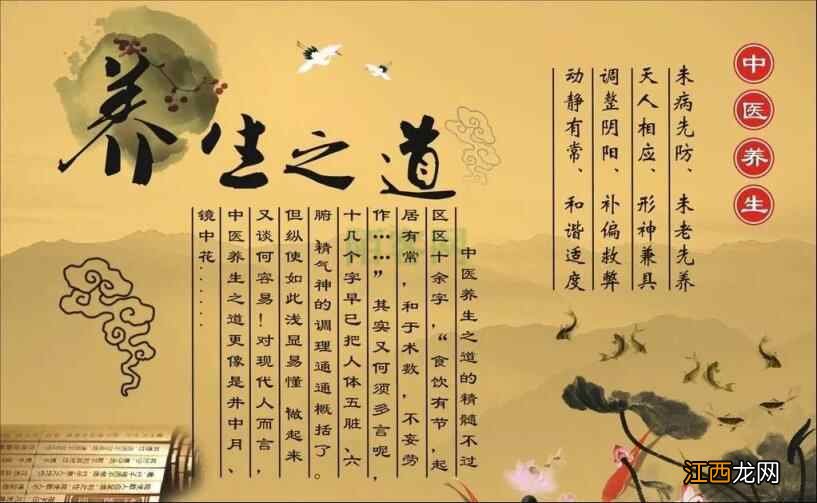 养生之道
中医养生
未病先防、未老先养
天人相应、形神兼具
调整阴阳、补偏救弊
动静有常、和谐适度
中医养生之道的精髓不过
区区十余字，“食饮有节，起
居有常，和于术数，不妄劳
作……”其实又何须多言呢，
十几个字早已把人体五脏、六
腑、精气神的调理通通概括了。
但纵使如此浅显易懂，做起来
又谈何容易！对现代人而言，
中医养生之道更像是井中月、
镜中花......
江西龙网